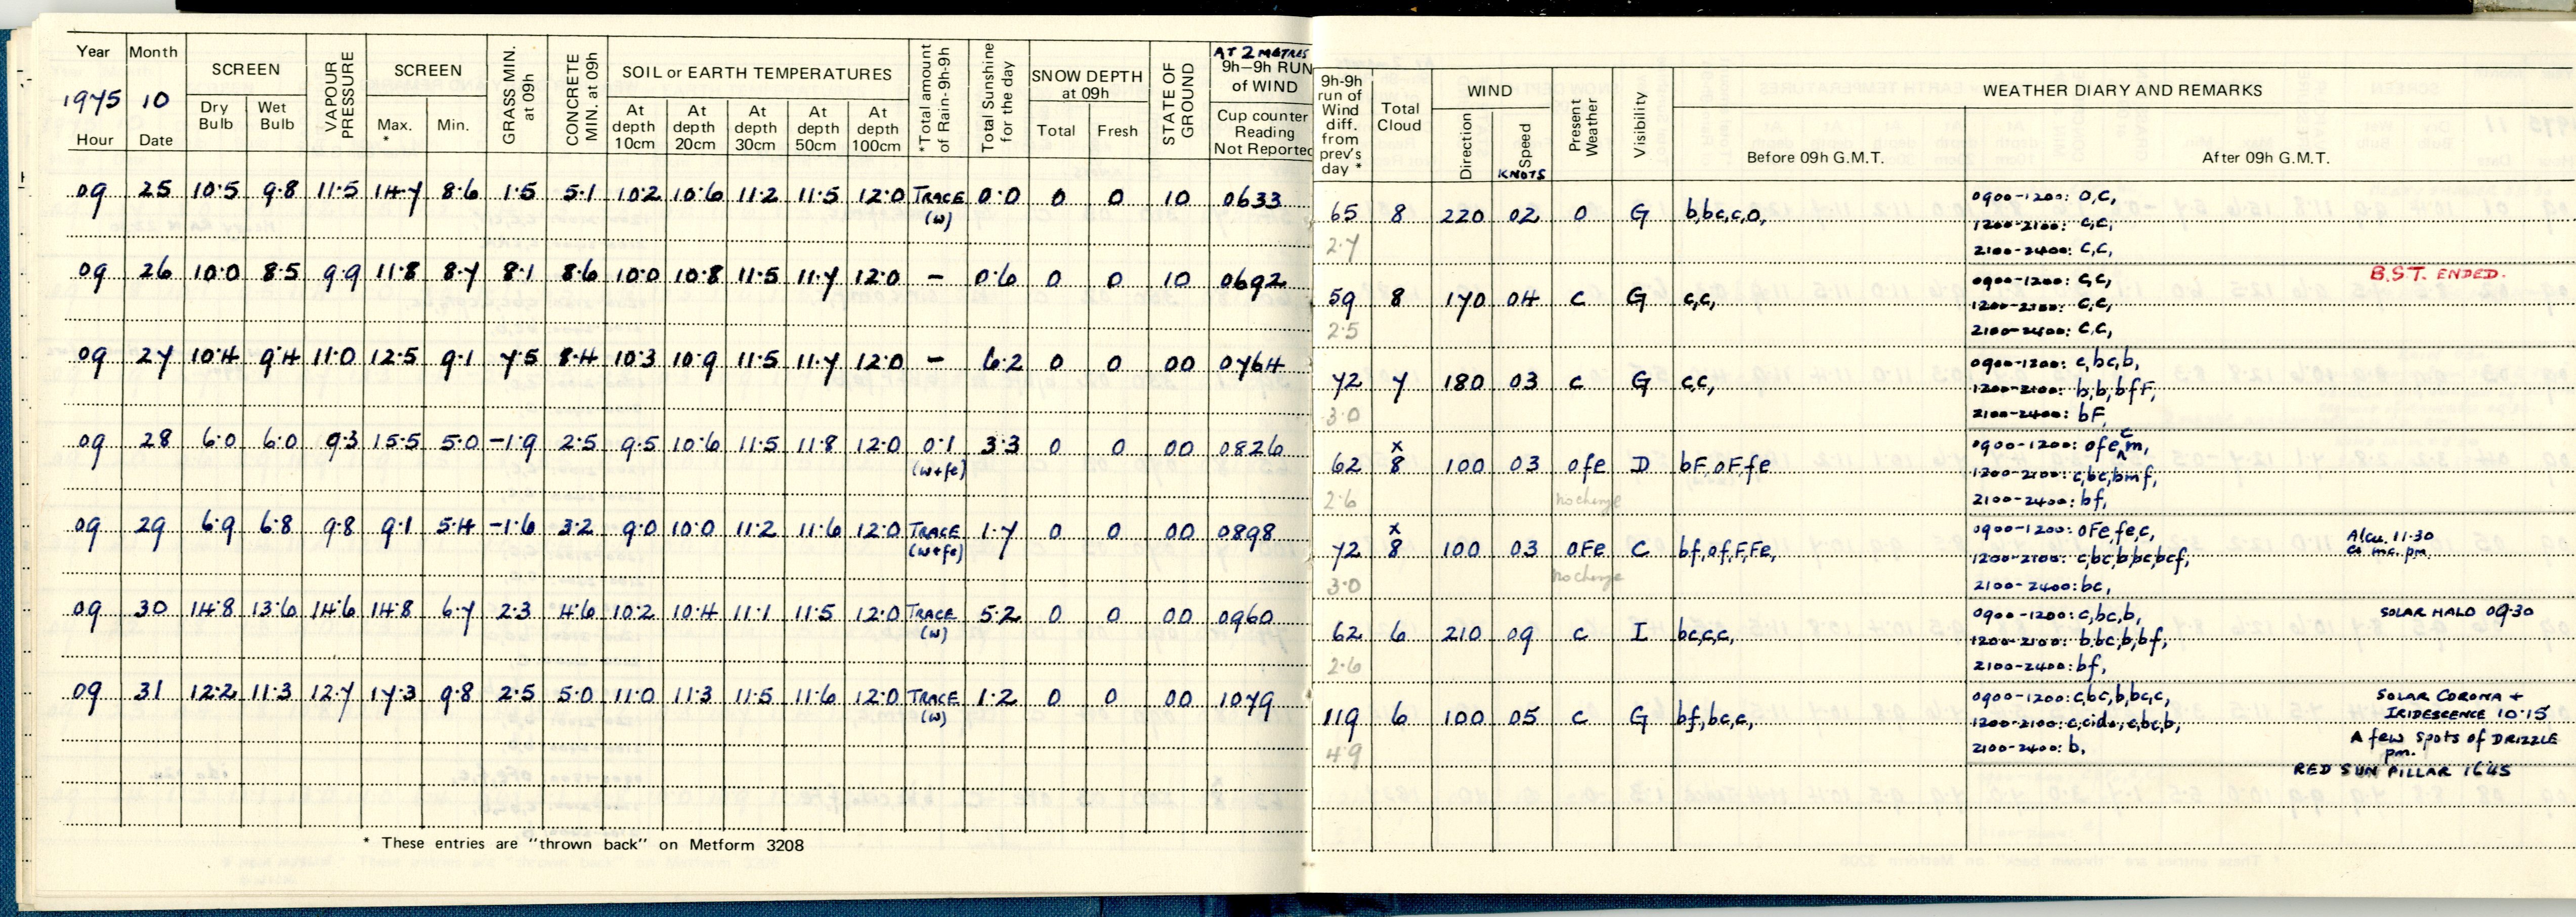 Year Month SCREEN VAPOUR PRESSURE SCREEN GRASS MIN. at 09h CONCRETE MIN. at 09h SOIL or EARTH TEMPERATURES *Total amount of Rain- 9h-9h Total Sunshine for the day SNOW DEPTH at 09h STATE OF GROUND AT 2 METRES 9h–9h RUN of WIND
1975 10 Dry Bulb Wet Bulb Max. * Min. At depth 10cm At depth 20cm At depth 30cm At depth 50cm At depth 100cm Total Fresh Cup counter Reading Not Reported
Hour Date
09 25 10·5 9·8 11·5 14·7 8·6 1·5 5·1 10·2 10·6 11·2 11·5 12·0 TRACE 0·0 0 0 10 0633
(w)
09 26 10·0 8·5 9·9 11·8 8·7 8·1 8·6 10·0 10·8 11·5 11·7 12·0 – 0·6 0 0 10 0692
09 27 10·4 9·4 11·0 12·5 9·1 7·5 8·4 10·3 10·9 11·5 11·7 12·0 – 6·2 0 0 00 0764
09 28 6·0 6·0 9·3 15·5 5·0 -1·9 2·5 9·5 10·6 11·5 11·8 12·0 0·1 3·3 0 0 00 0826
(w+fe)
09 29 6·9 6·8 9·8 9·1 5·4 -1·6 3·2 9·0 10·0 11·2 11·6 12·0 TRACE 1·7 0 0 00 0898
(w+fe)
09 30 14·8 13·6 14·6 14·8 6·7 2·3 4·6 10·2 10·4 11·1 11·5 12·0 TRACE 5·2 0 0 00 0960
(w)
09 31 12·2 11·3 12·7 17·3 9·8 2·5 5·0 11·0 11·3 11·5 11·6 12·0 TRACE 1·2 0 0 00 1079
(w)
* These entries are "thrown back" on Metform 3208
9h-9h run of Wind diff. from prev's day * Total Cloud WIND Present Weather Visibility WEATHER DIARY AND REMARKS
Direction Speed KNOTS Before 09h G.M.T. After 09h G.M.T.
65 8 220 02 O G b,bc,c,o, 0900-1200: O,C,
1200-2100: C,C,
2·7 2100-2400: C,C,
B.S.T. ENDED.
59 8 170 04 C G c,c, 0900-1200: C,C,
1200-2100: C,C,
2·5 2100-2400: C,C,
72 7 180 03 C G c,c, 0900-1200: c,bc,b,
1200-2100: b,b,bfF,
3·0 2100-2400: bF,
x
62 8 100 03 ofe D bF,oFfe 0900-1200: ofe c m,
1200-2100: c,bc,bmf,
2·6 no change 2100-2400: bf,
x
72 8 100 03 oFe C bf,of,F,Fe, 0900-1200: oFe,fe,c, Alcu. 11·30
1200-2100: c,bc,b,bc,bcf,
3·0 no change 2100-2400: bc,
62 6 210 09 C I bc,c,c, 0900-1200: c,bc,b, SOLAR HALO 09·30
1200-2100: b,bc,b,bf,
2·6 2100-2400: bf,
119 6 100 05 C G bf,bc,c, 0900-1200: c,bc,b,bc,c, SOLAR CORONA +
IRIDESCENCE 10·15
1200-2100: c,cido,c,bc,b,
4·9 2100-2400: b, A few spots of DRIZZLE
pm.
RED SUN PILLAR 1645